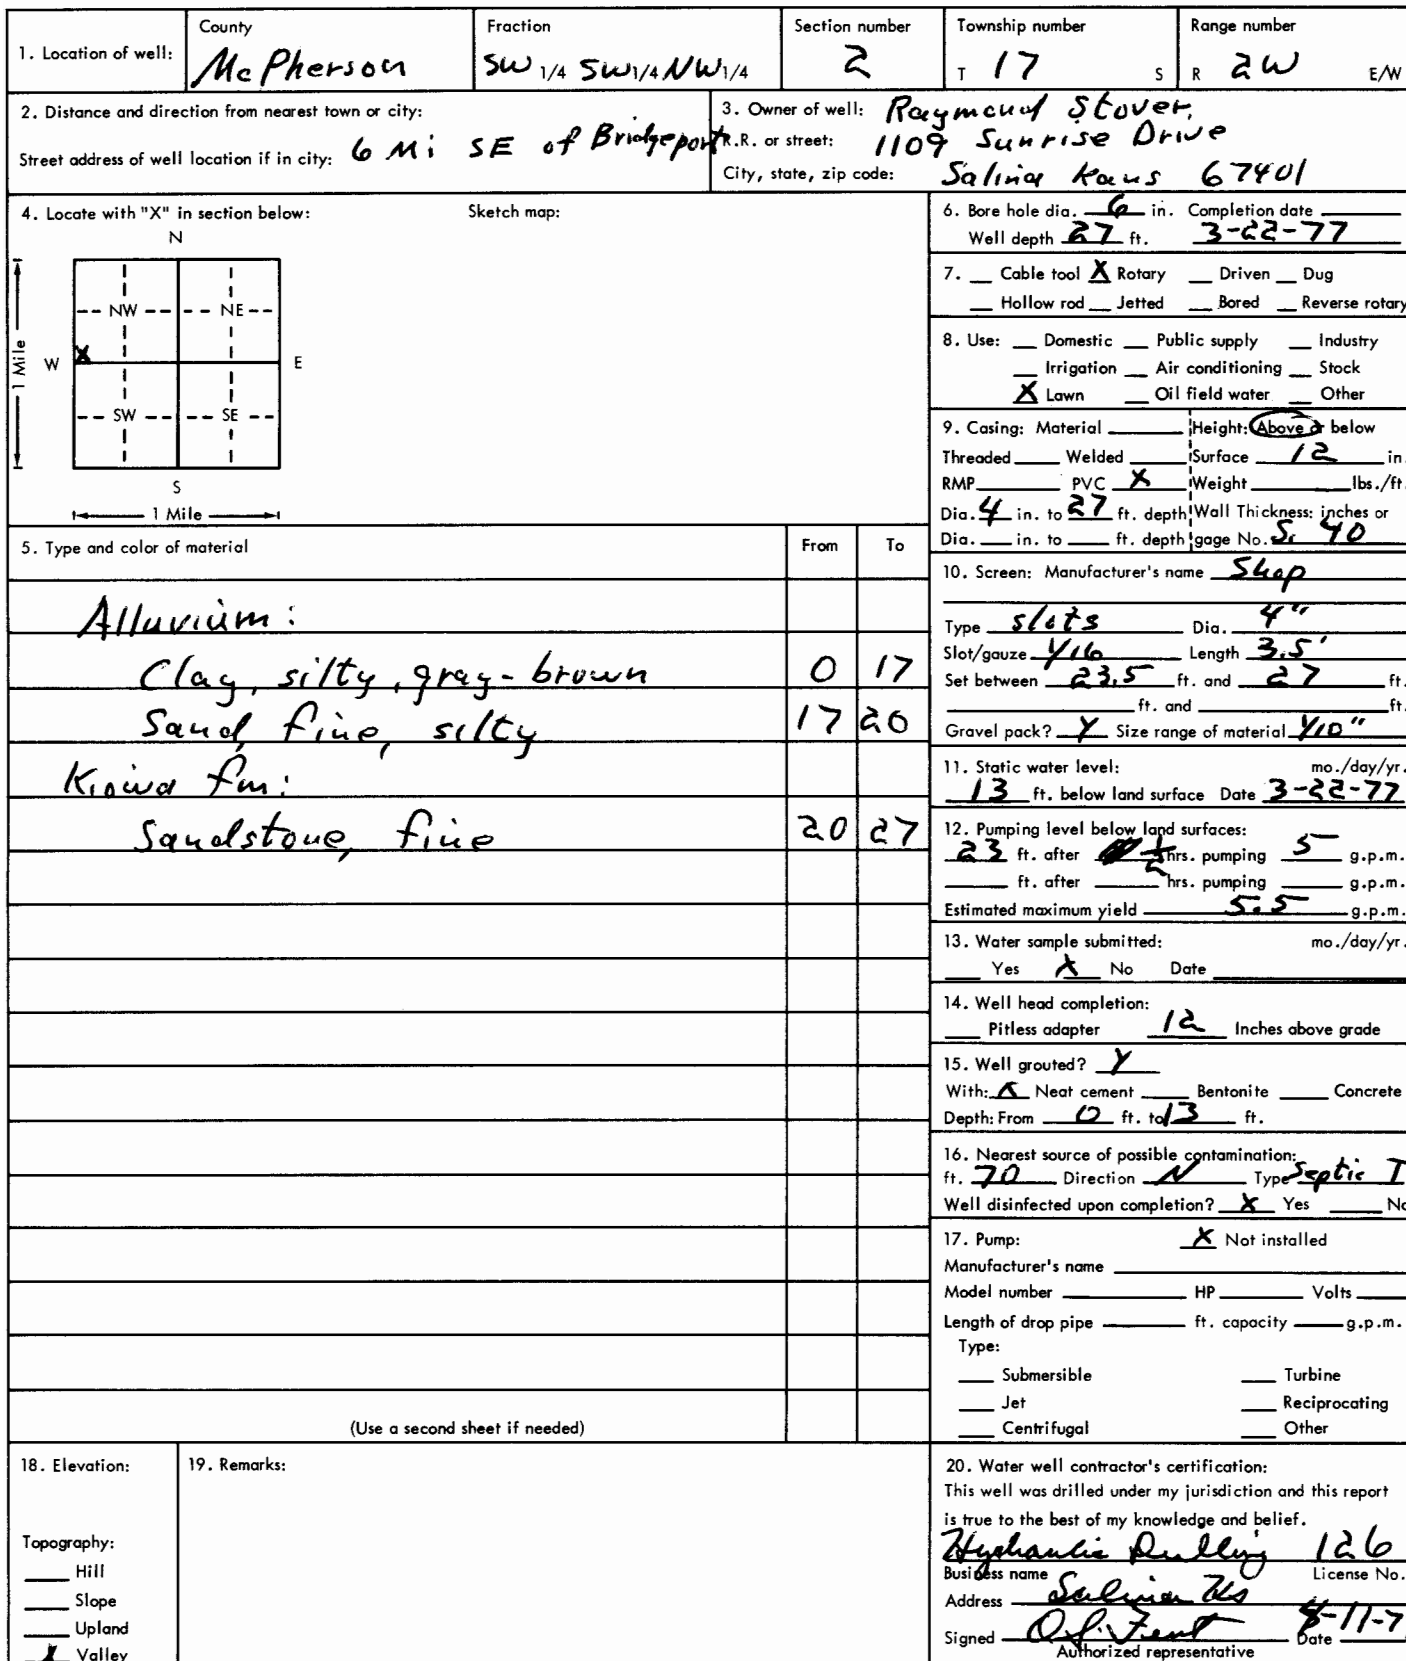 1. Location of well:
County
McPherson
Fraction
SW 1/4 SW 1/4 NW 1/4
Section number
2
Township number
T 17 S
Range number
R 2W E/W
2. Distance and direction from nearest town or city:
Street address of well location if in city: 6 Mi SE of Bridgeport
3. Owner of well: Raymond Stover,
R.R. or street: 1109 Sunrise Drive
City, state, zip code: Salina Kans 67401
4. Locate with "X" in section below:
Sketch map:
N
NW NE
1 Mile W X E
SW SE
S
1 Mile
5. Type and color of material From To
Alluvium:
Clay, silty, gray-brown 0 17
Sand, fine, silty 17 20
Kiowa fm:
Sandstone, fine 20 27
(Use a second sheet if needed)
6. Bore hole dia. 6 in. Completion date
Well depth 27 ft. 3-22-77
7. __ Cable tool X Rotary __ Driven __ Dug
__ Hollow rod __ Jetted __ Bored __ Reverse rotary
8. Use: __ Domestic __ Public supply __ Industry
__ Irrigation __ Air conditioning __ Stock
X Lawn __ Oil field water __ Other
9. Casing: Material ____ Height: Above or below
Threaded ____ Welded ____ Surface 12 in.
RMP ____ PVC X Weight ____ lbs./ft.
Dia. 4 in. to 27 ft. depth Wall Thickness: inches or
Dia. __ in. to __ ft. depth gage No. S. 40
10. Screen: Manufacturer's name Shop
Type slots Dia. 4"
Slot/gauze 1/16 Length 3.5'
Set between 23.5 ft. and 27 ft.
____ ft. and ____ ft.
Gravel pack? Y Size range of material 1/10"
11. Static water level: mo./day/yr.
13 ft. below land surface Date 3-22-77
12. Pumping level below land surfaces:
23 ft. after 1/2 hrs. pumping 5 g.p.m.
____ ft. after ____ hrs. pumping ____ g.p.m.
Estimated maximum yield 5.5 g.p.m.
13. Water sample submitted: mo./day/yr.
__ Yes X No Date ____
14. Well head completion:
__ Pitless adapter 12 Inches above grade
15. Well grouted? Y
With: X Neat cement ____ Bentonite ____ Concrete
Depth: From 0 ft. to 13 ft.
16. Nearest source of possible contamination:
ft. 70 Direction N Type Septic T
Well disinfected upon completion? X Yes ____ No
17. Pump: X Not installed
Manufacturer's name ____
Model number ____ HP ____ Volts ____
Length of drop pipe ____ ft. capacity ____ g.p.m.
Type:
__ Submersible __ Turbine
__ Jet __ Reciprocating
__ Centrifugal __ Other
18. Elevation:
Topography:
__ Hill
__ Slope
__ Upland
X Valley
19. Remarks:
20. Water well contractor's certification:
This well was drilled under my jurisdiction and this report
is true to the best of my knowledge and belief.
Hydraulic Drilling 126
Business name License No.
Address Salina Ks
Signed O.S. Fent Date 8-11-7
Authorized representative